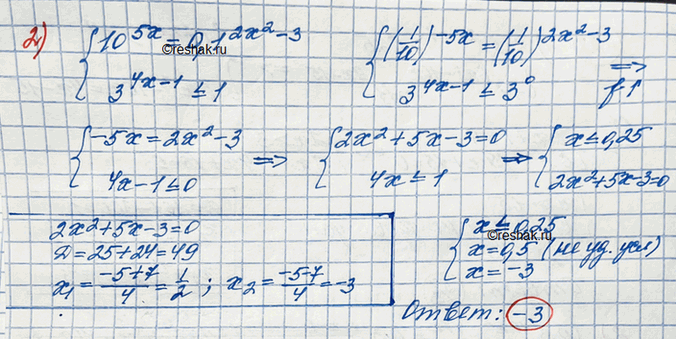 2) { 10^{5x} = 0,1^{2x²-3}
3^{4x-1} ≤ 1
{ (1/10)^{-5x} = (1/10)^{2x²-3}
3^{4x-1} ≤ 3^0 ⇒
f↑
{ -5x = 2x²-3
4x-1≤0 ⇒
{ 2x²+5x-3=0
4x ≤ 1 ⇒
{ x≤0,25
2x²+5x-3=0
2x²+5x-3=0
Д=25+24=49
x₁ = (-5+7)/4 = 1/2 ; x₂ = (-5-7)/4 = -3
{ x ≤ 0,25
x=0,5 (не уд. усл)
x = -3
Ответ: -3
©reshak.ru
©reshak.ru